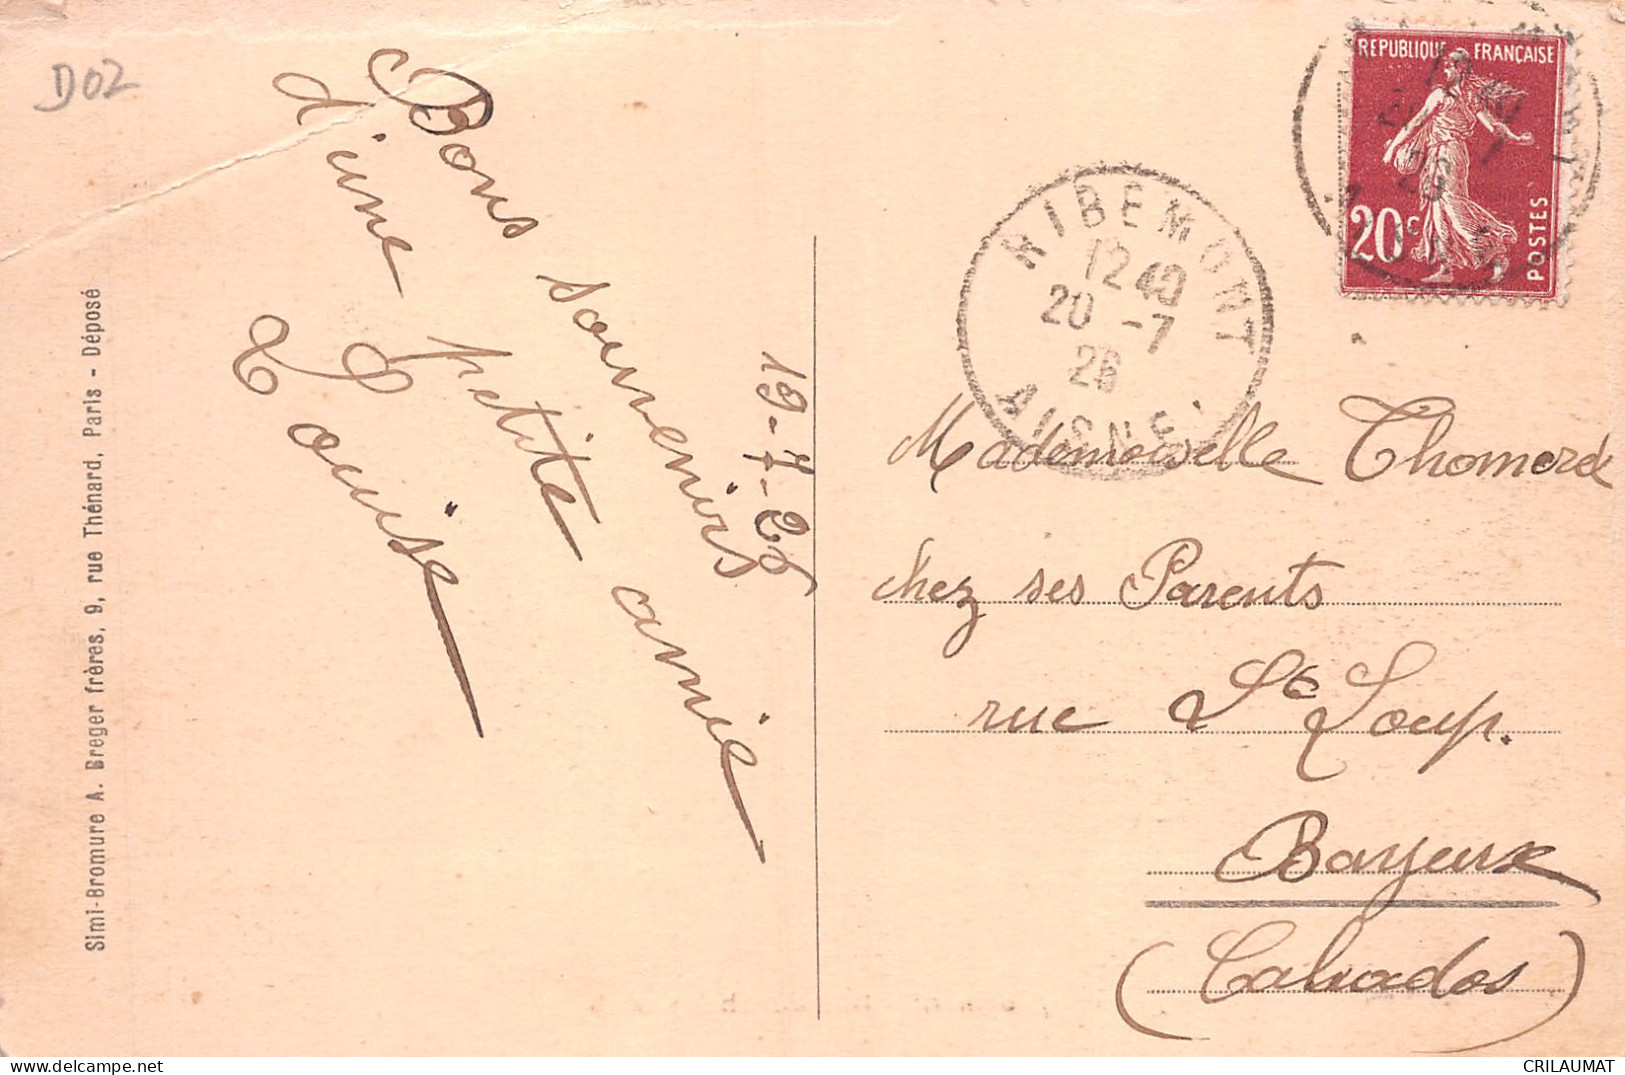 D02
Bons souvenirs
d'une petite amie
Louise
19-7-26
Simi-Bromure A. Breger frères, 9, rue Thénard, Paris - Déposé
RÉPUBLIQUE FRANÇAISE
20c
POSTES
RIBEMONT
12 40
20 -7
26
AISNE
Mademoiselle Thomerde
chez ses Parents
rue St Loup.
Bayeux
(Calvados)
CRILAUMAT